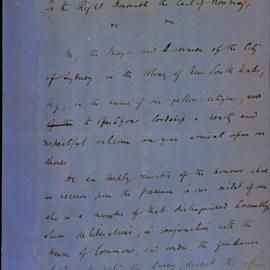 To the Right Honorable the Earl of Rosebery,
We, the Mayor and Aldermen of the City
of Sydney, in the Colony of New South Wales,
beg, in the name of our fellow-citizens, and
to offer your Lordship a hearty and
respectful welcome on your arrival upon our
shores.
We are deeply sensible of the honour which
we receive from the presence in our midst of one
who is a member of that distinguished Assembly
whose deliberations, in conjunction with the
House of Commons, and under the guidance
the Queen, direct the affairs